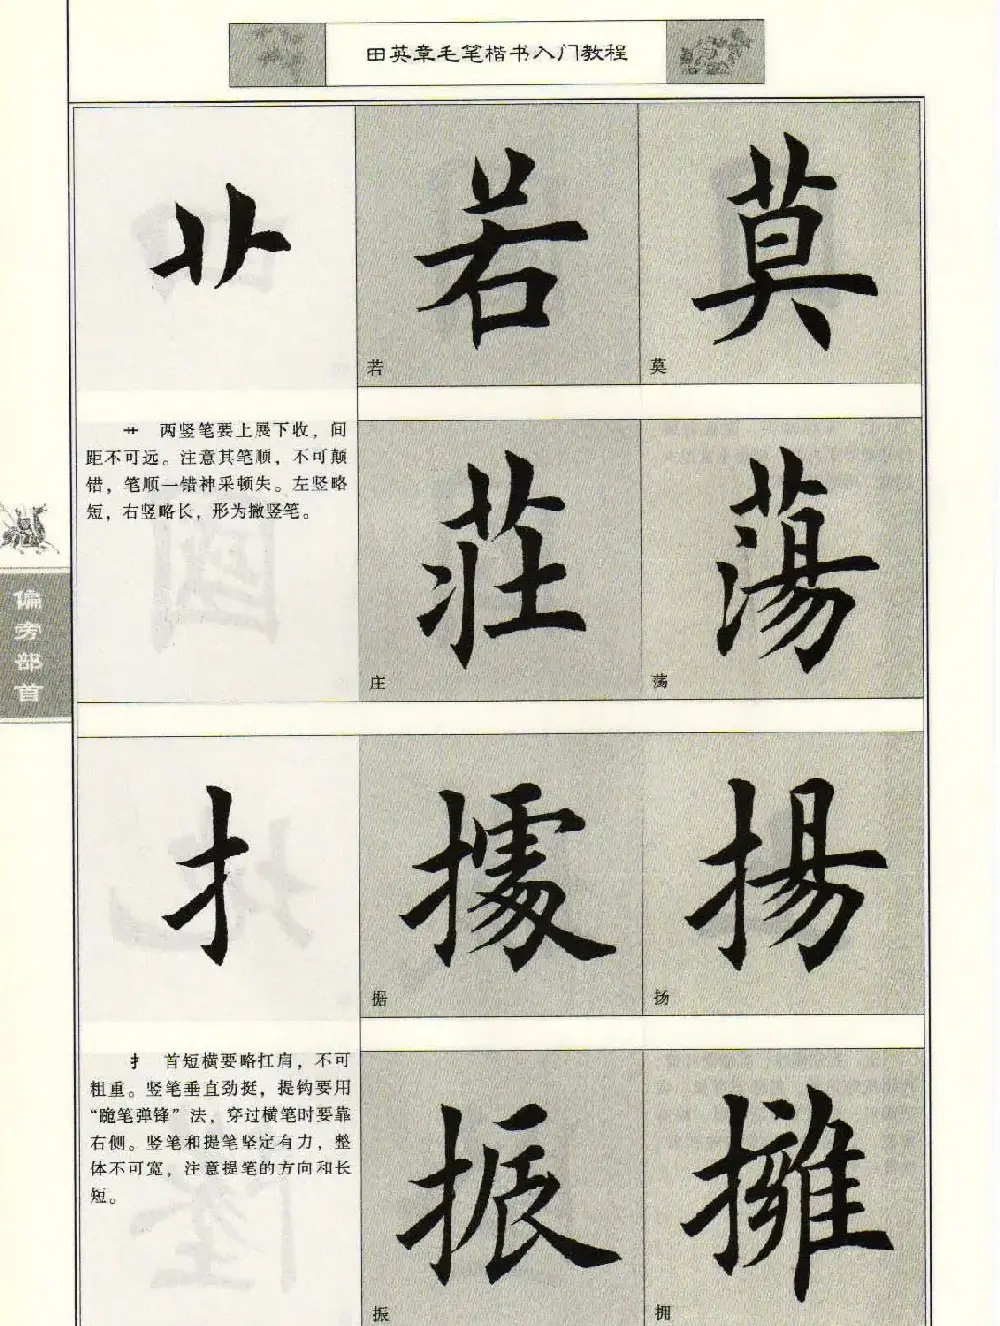 田英章毛笔楷书入门教程
若
莫
艹 两竖笔要上展下收，间
距不可远。注意其笔顺，不可颠
错，笔顺一错神采顿失。左竖略
短，右竖略长，形为撇竖笔。
莊
蕩
庄
荡
偏旁部首
扌
據
揚
据
扬
扌 首短横要略扛肩，不可
粗重。竖笔垂直劲挺，提钩要用
“跪笔弹锋”法，穿过横笔时要靠
右侧。竖笔和提笔坚定有力，整
体不可宽，注意提笔的方向和长
短。
振
擁
振
拥